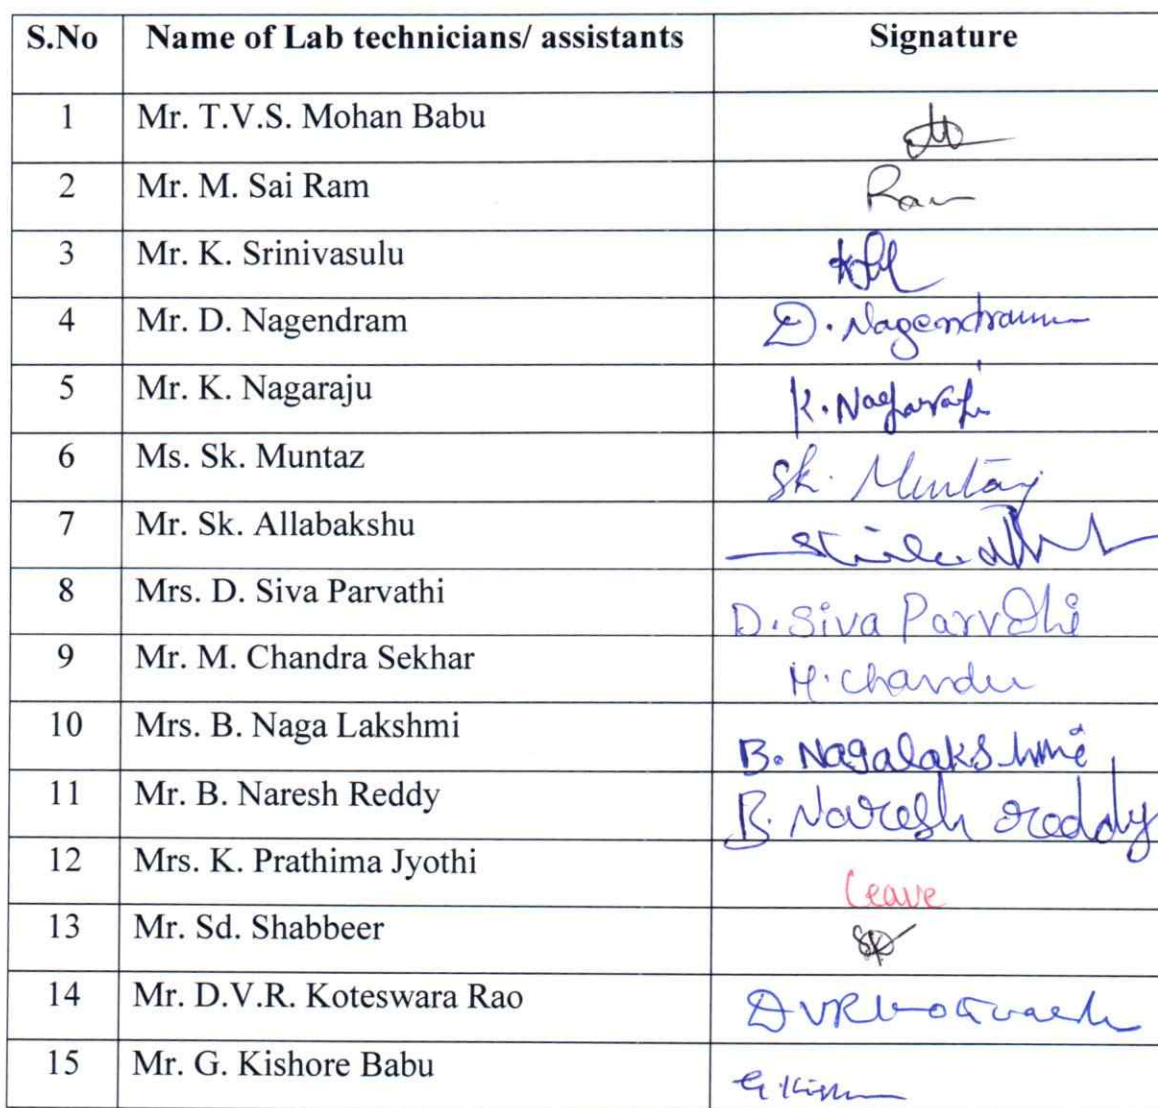 S.No Name of Lab technicians/ assistants Signature
1 Mr. T.V.S. Mohan Babu
2 Mr. M. Sai Ram Ram
3 Mr. K. Srinivasulu
4 Mr. D. Nagendram D. Nagendram
5 Mr. K. Nagaraju K. Nagaraju
6 Ms. Sk. Muntaz Sk. Muntaz
7 Mr. Sk. Allabakshu
8 Mrs. D. Siva Parvathi D. Siva Parvathi
9 Mr. M. Chandra Sekhar M. Chandu
10 Mrs. B. Naga Lakshmi B. Nagalakshmi
11 Mr. B. Naresh Reddy B. Naresh reddy
12 Mrs. K. Prathima Jyothi Leave
13 Mr. Sd. Shabbeer
14 Mr. D.V.R. Koteswara Rao
15 Mr. G. Kishore Babu